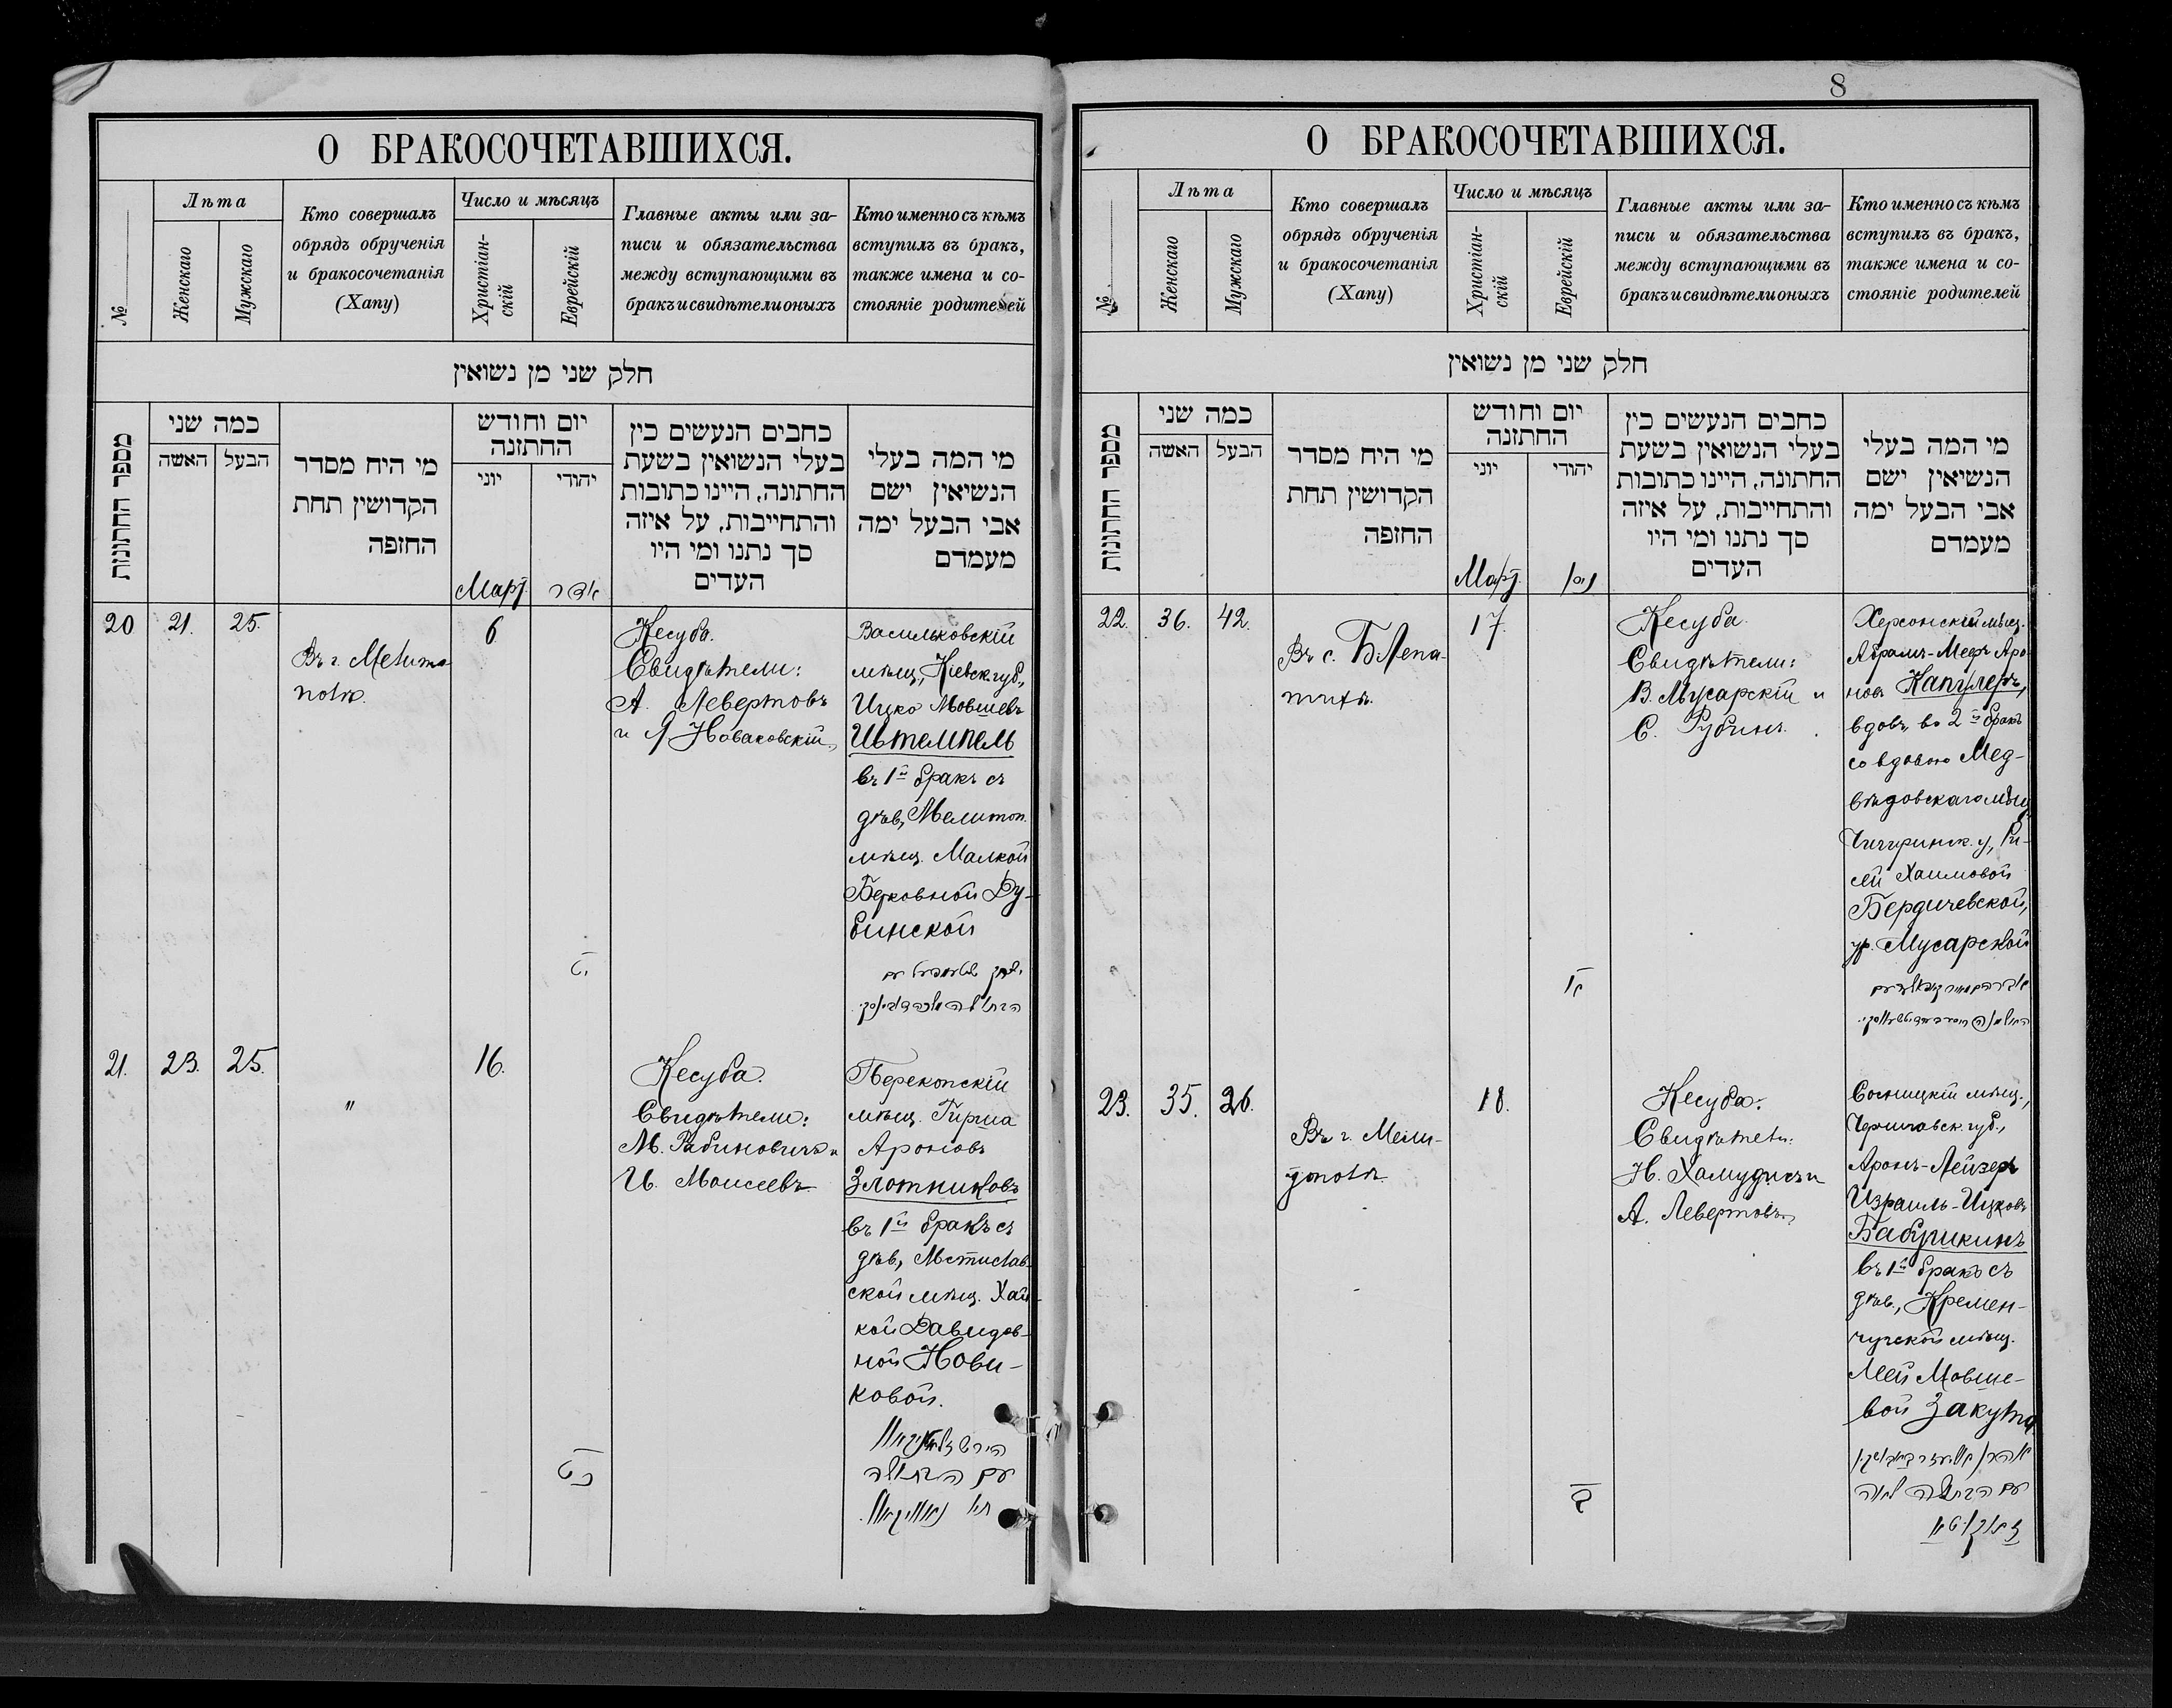 О БРАКОСОЧЕТАВШИХСЯ.
№
Лѣта
Женскаго
Мужскаго
Кто совершалъ
обрядъ обрученія
и бракосочетанія
(Хапу)
Число и мѣсяцъ
Христіан-
скій
Еврейскій
Главные акты или за-
писи и обязательства
между вступающими въ
бракъ и свидѣтели оныхъ
Кто именно съ кѣмъ
вступилъ въ бракъ,
также имена и со-
стояніе родителей
חלק שני מן נשואין
מספר החתונות
כמה שני
האשה
הבעל
מי היח מסדר
הקדושין תחת
החזפה
יום וחודש
החתזנה
יוני
יהודי
כחבים הנעשים כין
בעלי הנשואין בשעת
החתונה, היינו כתובות
והתחייבות, על איזה
סך נתנו ומי היו
העדים
מי המה בעלי
הנשיאין ישם
אבי הבעל ימה
מעמדם
Мартъ
אדר
20
21.
25.
Въ г. Мелито-
полѣ.
6
Кесуба.
Свидѣтели:
А. Левертовъ
и Я Новаковскій.
Васильковскій
мѣщ., Кіевск. губ.,
Ицко Мовшевъ
Штемпель
въ 1й бракъ съ
дѣв., Мелитоп.
мѣщ. Малкой
Берковной Ду-
бинской
21.
23.
25.
"
16.
Кесуба.
Свидѣтели:
М. Рабиновичъ и
И. Моисеевъ
Перекопскій
мѣщ. Гирша
Ароновъ
Злотниковъ
въ 1й бракъ съ
дѣв., Мстислав-
ской мѣщ. Хай-
кой Давидов-
ной Нови-
ковой.
כט
הירש זלאטניקאוו
עם הבתולה
חי' נאוויקאוו.
8
О БРАКОСОЧЕТАВШИХСЯ.
№
Лѣта
Женскаго
Мужскаго
Кто совершалъ
обрядъ обрученія
и бракосочетанія
(Хапу)
Число и мѣсяцъ
Христіан-
скій
Еврейскій
Главные акты или за-
писи и обязательства
между вступающими въ
бракъ и свидѣтели оныхъ
Кто именно съ кѣмъ
вступилъ въ бракъ,
также имена и со-
стояніе родителей
חלק שני מן נשואין
מספר החתונות
כמה שני
האשה
הבעל
מי היח מסדר
הקדושין תחת
החזפה
יום וחודש
החתזנה
יוני
יהודי
כחבים הנעשים כין
בעלי הנשואין בשעת
החתונה, היינו כתובות
והתחייבות, על איזה
סך נתנו ומי היו
העדים
מי המה בעלי
הנשיאין ישם
אבי הבעל ימה
מעמדם
Мартъ
ניסן
22.
36.
42.
Въ с. Б Лепа-
тихѣ.
17.
Кесуба.
Свидѣтели:
В. Мусарскій и
С. Рубинъ.
Херсонскій мѣщ.
Абрамъ-Меѣръ Аро-
новъ Капулеръ,
вдов., во 2й бракъ
со вдовою Мед-
вѣдовскаго мѣщ.
Чигиринск. у,
Хаимовой
Бердичевской,
ур. Мусарской
23.
35.
26.
Въ г. Мели-
тополѣ
18.
Кесуба.
Свидѣтели:
Н. Хамудисъ и
А. Левертовъ.
Сосницкій мѣщ.,
Черниговск. губ.,
Аронъ-Лейзеръ
Израиль-Ицковъ
Бабушкинъ
въ 1й бракъ съ
дѣв., Кремен-
чугской мѣщ.
Леей Мовше-
вой Закута
אהרן אליעזר באבושקין
עם הבתולה לאה